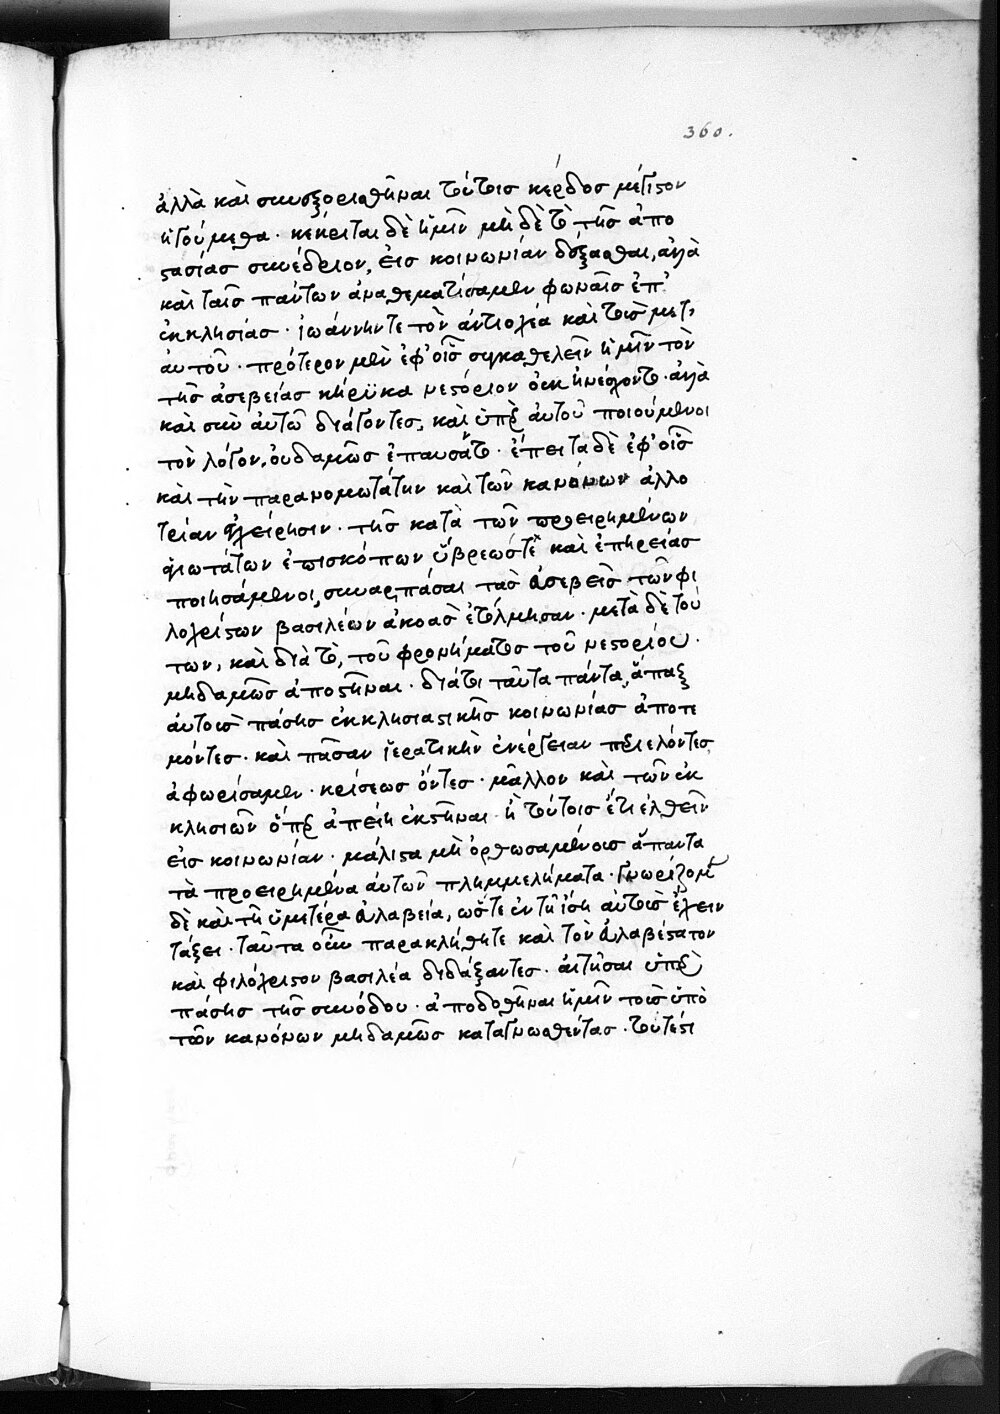 360.
ἀλλὰ καὶ συνεξορισθῆναι τούτοις κέρδος μέγιστον
ἡγούμεθα · κέκριται δὲ ἡμῖν μὴ δὲ τὸ τῆς ἀπο
στασίας συνέδριον, εἰς κοινωνίαν δέξασθαι, ἀλλὰ
καὶ ταῖς πάντων ἀναθεματίσαμεν φωναῖς ἐπ'
ἐκκλησίας · ἰωάννην τε τὸν ἀντιοχέα καὶ τοὺς μετ'
αὐτοῦ · πρότερον μὲν ἐφ' οἷς συγκαθελεῖν ἡμῖν τὸν
τῆς ἀσεβείας κήρϋκα νεστόριον οὐκ ἠνέσχοντο · ἀλλὰ
καὶ σὺν αὐτῶ διάγοντες, καὶ ὑπὲρ αὐτοῦ ποιούμενοι
τὸν λόγον, οὐδαμῶς ἐπαύσαντο · ἔπειτα δὲ ἐφ' οἷς
καὶ τὴν παρανομωτάτην καὶ τῶν κανόνων ἀλλο
τρίαν ἐγχείρησιν · τῆς κατὰ τῶν προειρημένων
ἁγιωτάτων ἐπισκόπων ὕβρεώς τε καὶ ἐπηρείας
ποιησάμενοι, συναρπάσαι τὰς εὐσεβεῖς τῶν φι
λοχρίστων βασιλέων ἀκοὰς ἐτόλμησαν · μετὰ δὲ τού
των, καὶ διὰ τὸ, τοῦ φρονήματος τοῦ νεστορίου ·
μηδαμῶς ἀποστῆναι · διά τι ταῦτα πάντα, ἅπαξ
αὐτοὺς πάσης ἐκκλησιαστικῆς κοινωνίας ἀποτε
μόντες · καὶ πᾶσαν ἱερατικὴν ἐνέργειαν περιελόντες
ἀφωρίσαμεν · κρίσεως ὄντες · μᾶλλον καὶ τῶν ἐκ
κλησιῶν ὅπερ ἀπείη ἐκστῆναι · ἢ τούτοις ἔτι ἐλθεῖν
εἰς κοινωνίαν · μάλιστα μὴ ὀρθωσαμένοις ἅπαντα
τὰ προειρημένα αὐτῶν πλημμελήματα · γνωρίζομεν
δὲ καὶ τῆ ὑμετέρα εὐλαβεία, ὥστε ἐν τῆ ἴση αὐτοὺς ἔχειν
τάξει · ταῦτα οὖν παρακλήθητε καὶ τὸν εὐλαβέστατον
καὶ φιλόχριστον βασιλέα διδάξαντες · αἰτῆσαι ὑπὲρ
πάσης τῆς συνόδου · ἀποδοθῆναι ἡμῖν τοὺς ὑπὸ
τῶν κανόνων μηδαμῶς καταγνωσθέντας · τουτέστι